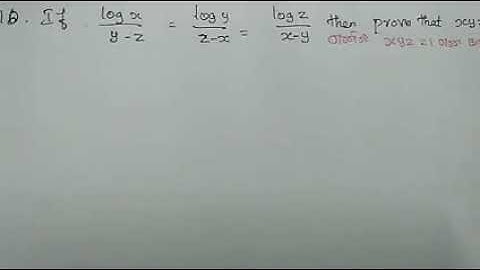 10. If log x / y-z = log y / z-x = log z / x-y then prove that xyz
xyz = 1